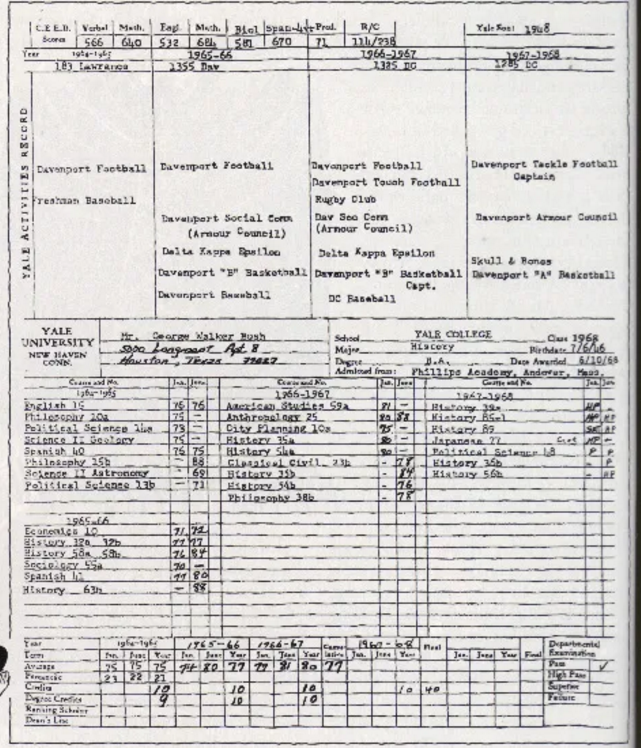 C.E.E.B. Verbal Math. Engl. Math. Biol Span- Prod. R/C Yale 1948
Scores 566 640 532 684 581 670 71 114/238
Year 1964-1965 1965-66 1966-1967 1967-1968
183 Lawrance 1355 Dav 1385 DC 1285 DC
YALE ACTIVITIES RECORD
Davenport Football Davenport Football Davenport Football Davenport Tackle Football
Captain
Davenport Touch Football
Freshman Baseball Rugby Club
Davenport Social Comm Dav Soc Comm Davenport Armour Council
(Armour Council) (Armour Council)
Delta Kappa Epsilon Delta Kappa Epsilon Skull & Bones
Davenport "B" Basketball Davenport "B" Basketball Davenport "A" Basketball
Capt.
Davenport Baseball DC Baseball
YALE UNIVERSITY
NEW HAVEN CONN.
Mr. George Walker Bush
5000 Longmont Apt. 8
Houston, Texas 77027
School YALE COLLEGE Class 1968
Major History Birthdate 7/6/46
Degree B.A. Date Awarded 6/10/68
Admitted from: Phillips Academy, Andover, Mass.
Course and No. Jan. June Course and No. Jan. June Course and No. Jan. Jun
1964-1965 1966-1967 1967-1968
English 15 76 76 American Studies 59a 71 - History 39a HP -
Philosophy 10a 75 - Anthropology 25 80 88 History 85-1 HP HP
Political Science 14a 73 - City Planning 10a 75 - History 89
Science II Geology 75 - History 35a 80 - Japanese 77 HP -
Spanish 40 76 75 History 54a 80 - Political Science 48 P P
Philosophy 15b - 88 Classical Civil. 23b - 78 History 36b - P
Science II Astronomy - 69 History 35b - 84 History 56b - HP
Political Science 13b - 71 History 54b - 76
Philosophy 38b - 78
1965-66
Economics 10 71 72
History 32a 32b 77 77
History 58a 58b 76 84
Sociology 55a 70 -
Spanish 41 77 80
History 63b - 88
Year 1964-1965 1965-66 1966-67 1967-68 Final Departmental Examination
Term Jan. June Year Jan. June Year Jan. June Year Jan. June Year Jan. June Year Final
Average 75 75 75 74 80 77 79 81 80 77 Pass ✓
Percentile 23 22 21 High Pass
Credits 10 10 10 10 40 Superior
Degree Credits 9 10 10 Failure
Ranking Scholar
Dean's List